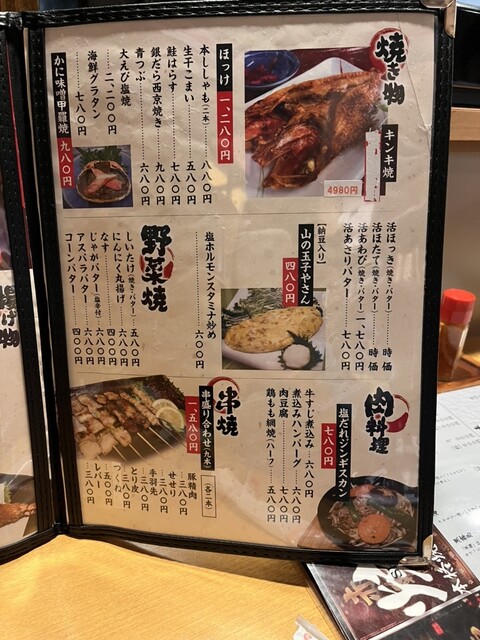 焼き物
キンキ焼
4980円
ほっけ 一、二八〇円
本ししゃも(二本) 八八〇円
生干こまい 五八〇円
鮭はらす 七八〇円
銀だら西京焼き 九八〇円
青つぶ 六八〇円
大えび塩焼 二、二〇〇円
海鮮グラタン 七八〇円
かに味噌甲羅焼 九八〇円
活ほっき(焼き・バター) 時価
活ほたて(焼き・バター) 時価
活あわび(焼き・バター) 一、七八〇円
活あさりバター 七八〇円
【納豆入り】
山の玉子やさん 四八〇円
塩ホルモンスタミナ炒め 六〇〇円
野菜焼
しいたけ(焼き・バター) 五八〇円
にんにく丸揚げ 四八〇円
なす 四〇〇円
じゃがバター(塩辛付) 六八〇円
アスパラバター 六八〇円
コーンバター 四八〇円
肉料理
塩だれジンギスカン 七八〇円
牛すじ煮込み 六八〇円
煮込みハンバーグ 六八〇円
肉豆腐 七八〇円
鶏もも網焼(ハーフ) 五八〇円
串焼
串盛り合わせ(九本) 一、五八〇円
【各二本】
豚精肉 三八〇円
せせり 三八〇円
手羽先 三八〇円
とり皮 三八〇円
つくね 五〇〇円
レバー 三八〇円
揚げ物